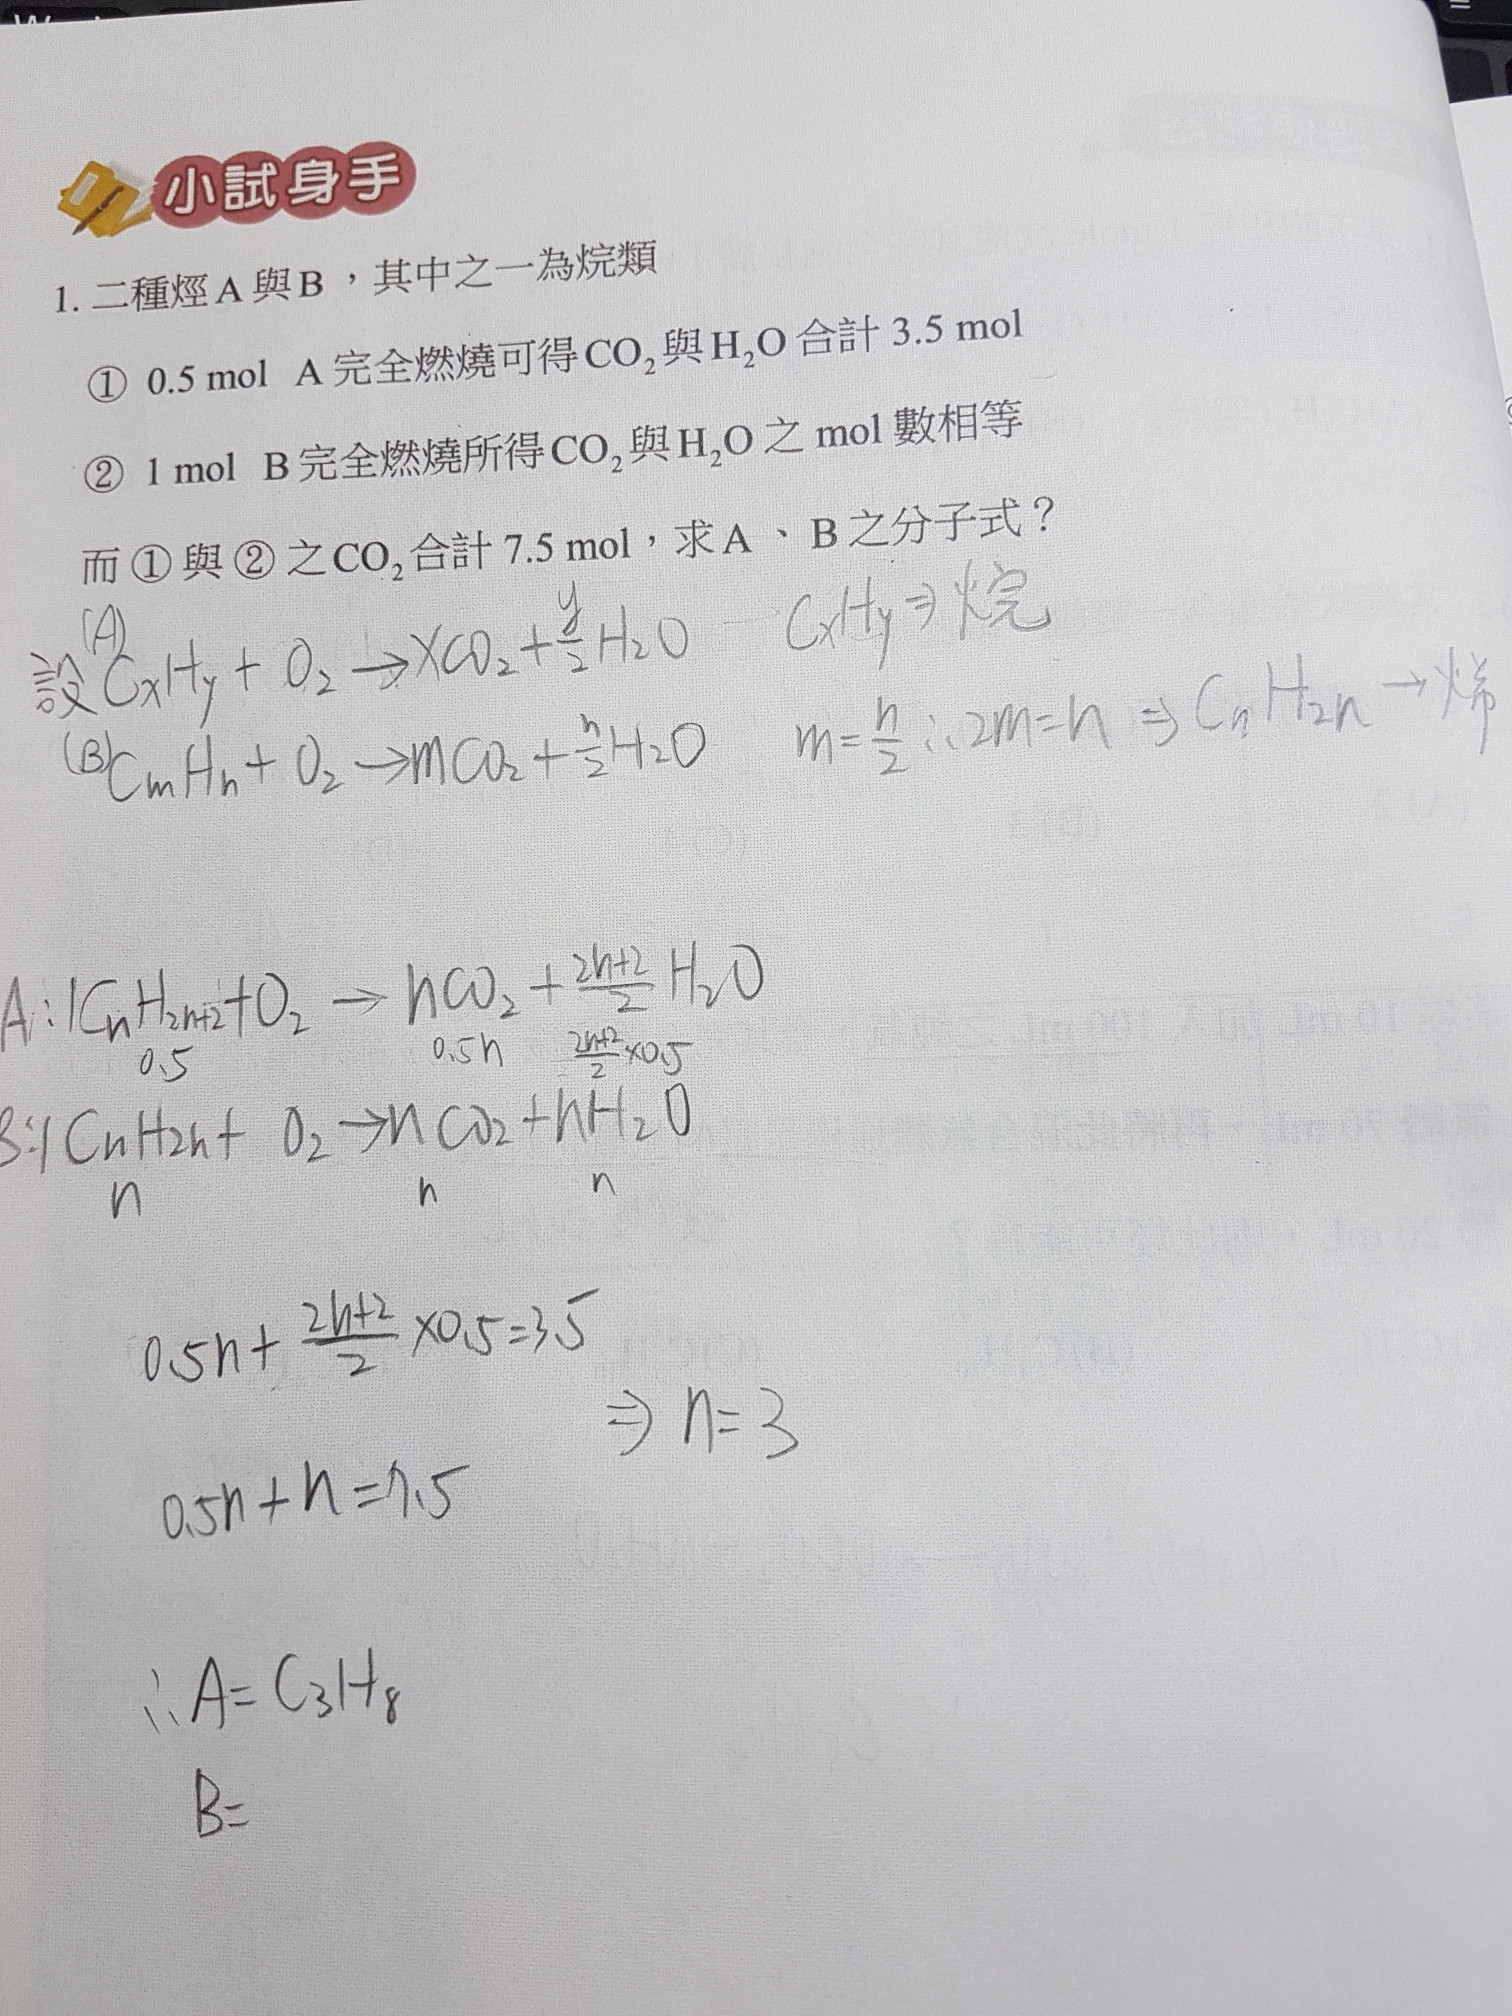 小試身手
1. 二種烴A與B，其中之一為烷類
① 0.5 mol A完全燃燒可得CO₂與H₂O合計 3.5 mol
② 1 mol B完全燃燒所得CO₂與H₂O之 mol 數相等
而①與②之CO₂合計 7.5 mol，求A、B之分子式？
(A)
設 CxHy + O₂ → XCO₂ + y/2 H₂O CxHy ⇒ 烷
(B) CmHn + O₂ → mCO₂ + n/2 H₂O m = n/2 ∴ 2m = n ⇒ CnH2n → 烯
A: 1CnH2n+2 + O₂ → nCO₂ + (2n+2)/2 H₂O
0.5 0.5n (2n+2)/2 ×0.5
B: 1CnH2n + O₂ → nCO₂ + nH₂O
n n n
0.5n + (2n+2)/2 ×0.5 = 3.5
⇒ n = 3
0.5n + n = 7.5
∴ A = C₃H₈
B =